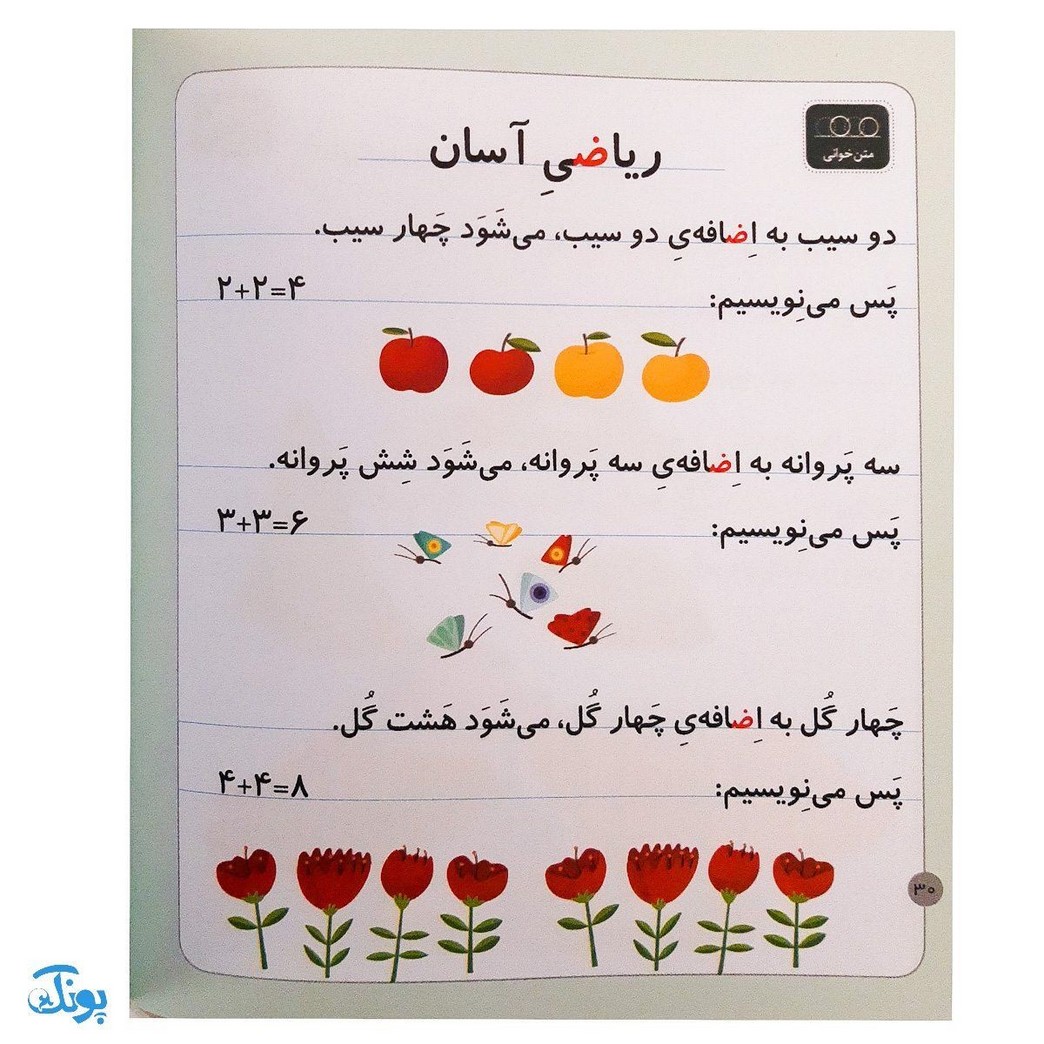 متن‌خوانی
ریاضیِ آسان
دو سیب به اِضافه‌یِ دو سیب، می‌شَوَد چَهار سیب.
پَس می‌نِویسیم: ۲+۲=۴
سه پَروانه به اِضافه‌یِ سه پَروانه، می‌شَوَد شِش پَروانه.
پَس می‌نِویسیم: ۳+۳=۶
چَهار گُل به اِضافه‌یِ چَهار گُل، می‌شَوَد هَشت گُل.
پَس می‌نِویسیم: ۴+۴=۸
۳۰
پونک